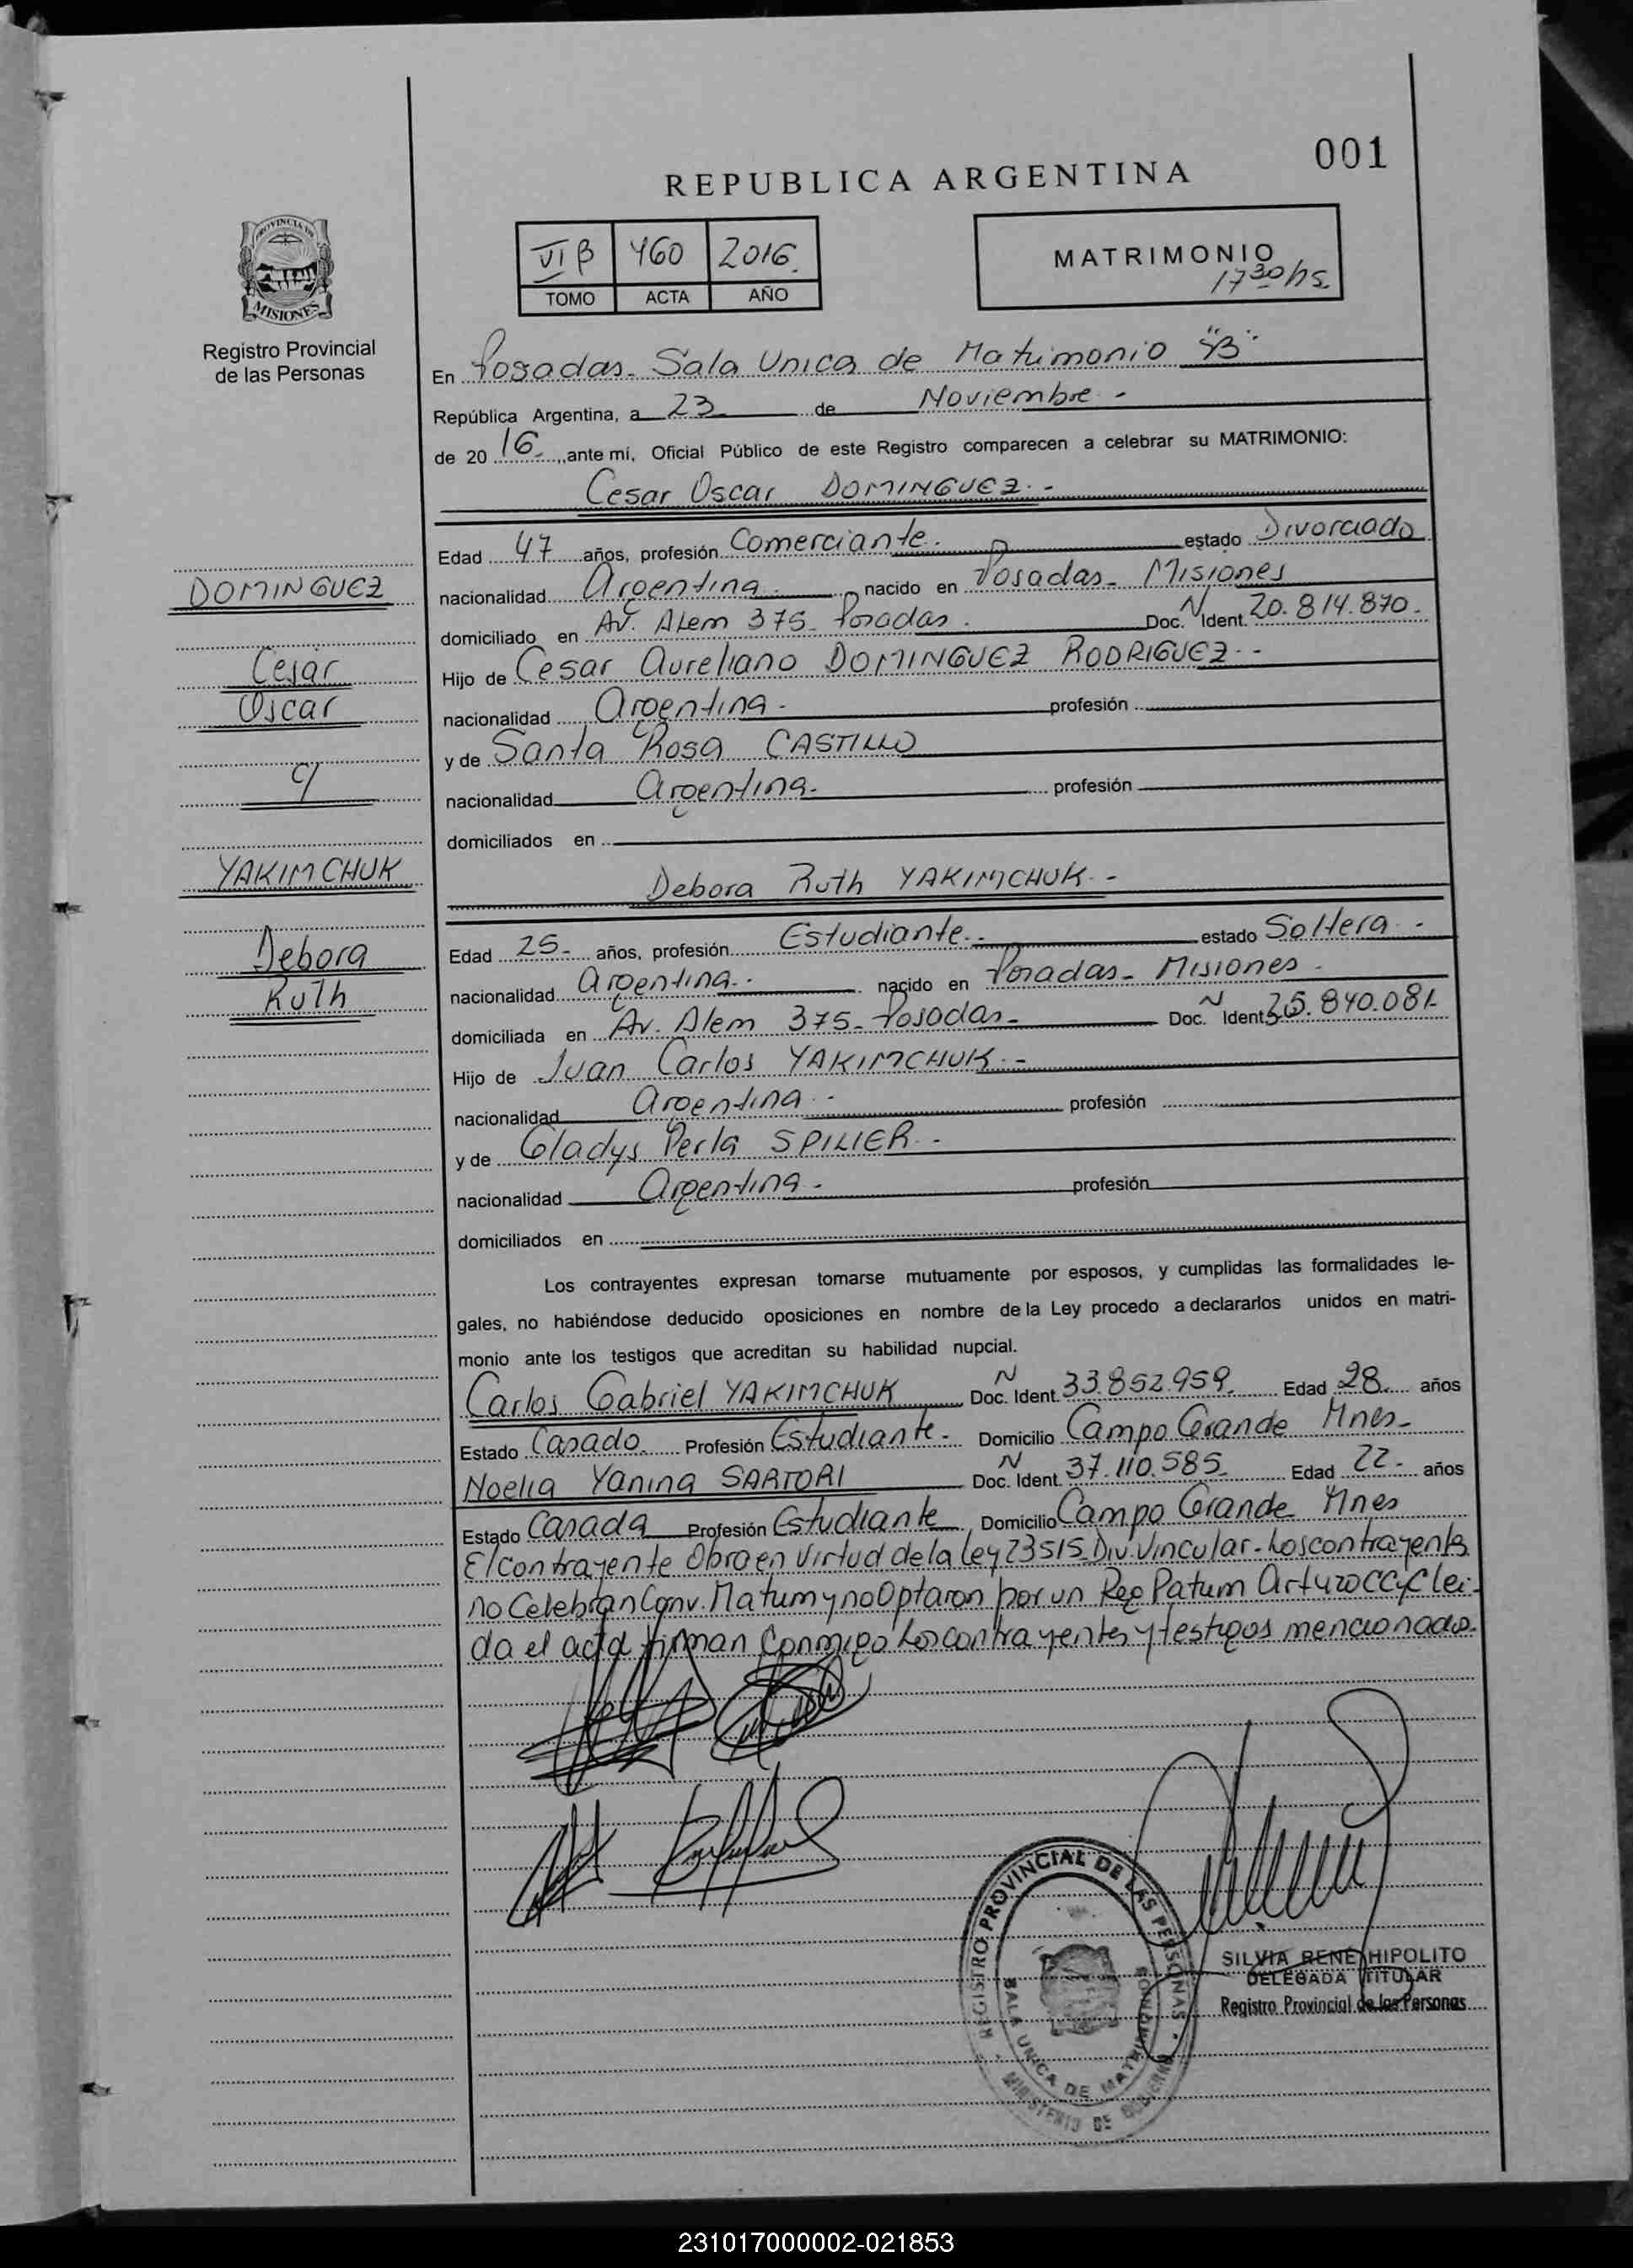 001
REPUBLICA ARGENTINA
VI B 460 2016.
TOMO ACTA AÑO
MATRIMONIO
17 30 hs.
PROVINCIA DE
MISIONES
Registro Provincial
de las Personas
En Posadas - Sala Unica de Matrimonio "B"
República Argentina, a 23 de Noviembre -
de 20 16 - ,ante mí, Oficial Público de este Registro comparecen a celebrar su MATRIMONIO:
Cesar Oscar DOMINGUEZ. -
Edad 47 años, profesión Comerciante. estado Divorciado
nacionalidad Argentina. nacido en Posadas - Misiones
domiciliado en Av. Alem 375 - Posadas. Doc. N Ident. 20.814.870.
Hijo de Cesar Aureliano DOMINGUEZ RODRIGUEZ. -
nacionalidad Argentina - profesión
y de Santa Rosa CASTILLO
nacionalidad Argentina. profesión
domiciliados en
DOMINGUEZ
Cesar
Oscar
c/
YAKIMCHUK
Debora
Ruth
Debora Ruth YAKIMCHUK. -
Edad 25 - años, profesión Estudiante. - estado Soltera -
nacionalidad Argentina. - nacido en Posadas - Misiones.
domiciliada en Av. Alem 375 - Posadas - Doc. N Ident. .840.081-
Hijo de Juan Carlos YAKIMCHUK. -
nacionalidad Argentina. - profesión
y de Gladys Perla SPILIER. -
nacionalidad Argentina. profesión
domiciliados en
Los contrayentes expresan tomarse mutuamente por esposos, y cumplidas las formalidades le-
gales, no habiéndose deducido oposiciones en nombre de la Ley procedo a declararlos unidos en matri-
monio ante los testigos que acreditan su habilidad nupcial.
Carlos Gabriel YAKIMCHUK Doc. N Ident. 33.852.959. Edad 28. años
Estado Casado. Profesión Estudiante - Domicilio Campo Grande Mnes-
Noelia Yanina SARTORI Doc. N Ident. 37.110.585. Edad 22 - años
Estado Casada Profesión Estudiante Domicilio Campo Grande Mnes
El contrayente Obra en Virtud de la Ley 23515 - Div. Vincular - Los contrayentes
no Celebran Conv. Matrim y no Optaron por un Reg Patrim Art 420 CCyC lei-
da el acta firman Conmigo los contrayentes y testigos mencionados.
REGISTRO PROVINCIAL DE LAS PERSONAS
SALA UNICA DE MATRIMONIO
MINISTERIO DE GOBIERNO
SILVIA RENE HIPOLITO
DELEGADA TITULAR
Registro Provincial de las Personas
231017000002-021853